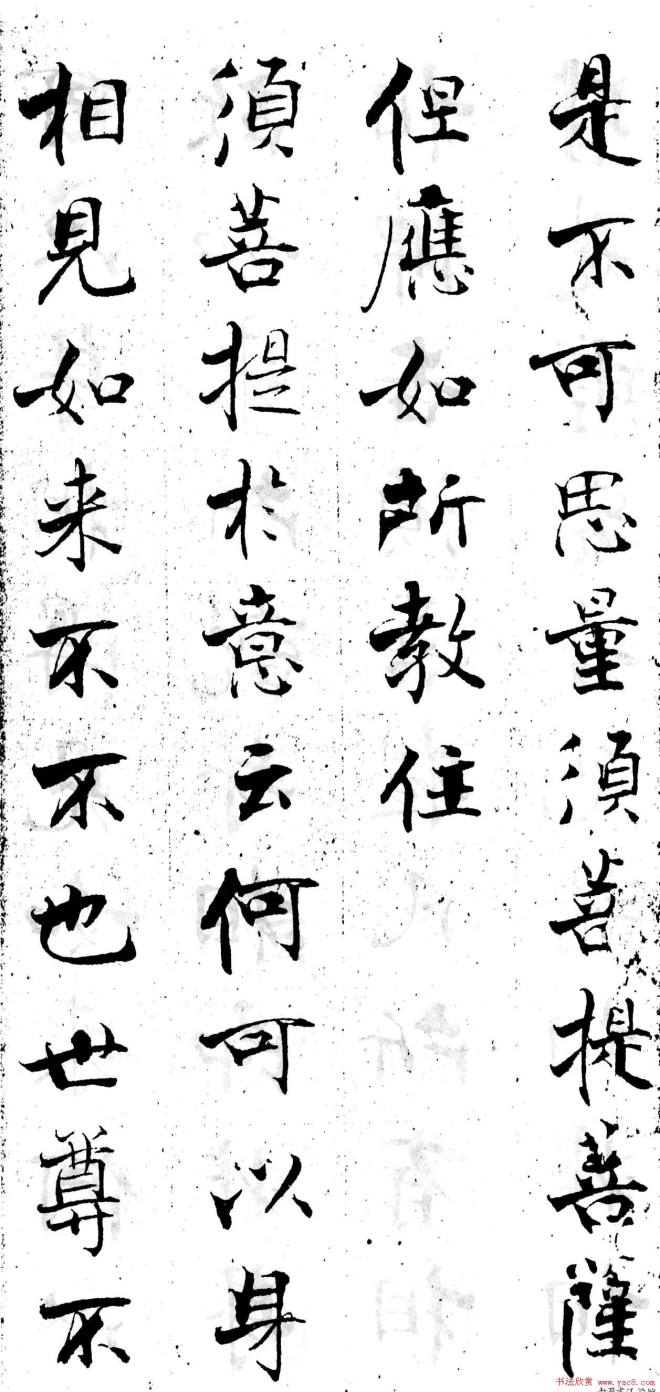 是不可思量須菩提菩薩
但應如所教住
須菩提於意云何可以身
相見如来不不也世尊不
书法欣赏 www.yac8.com